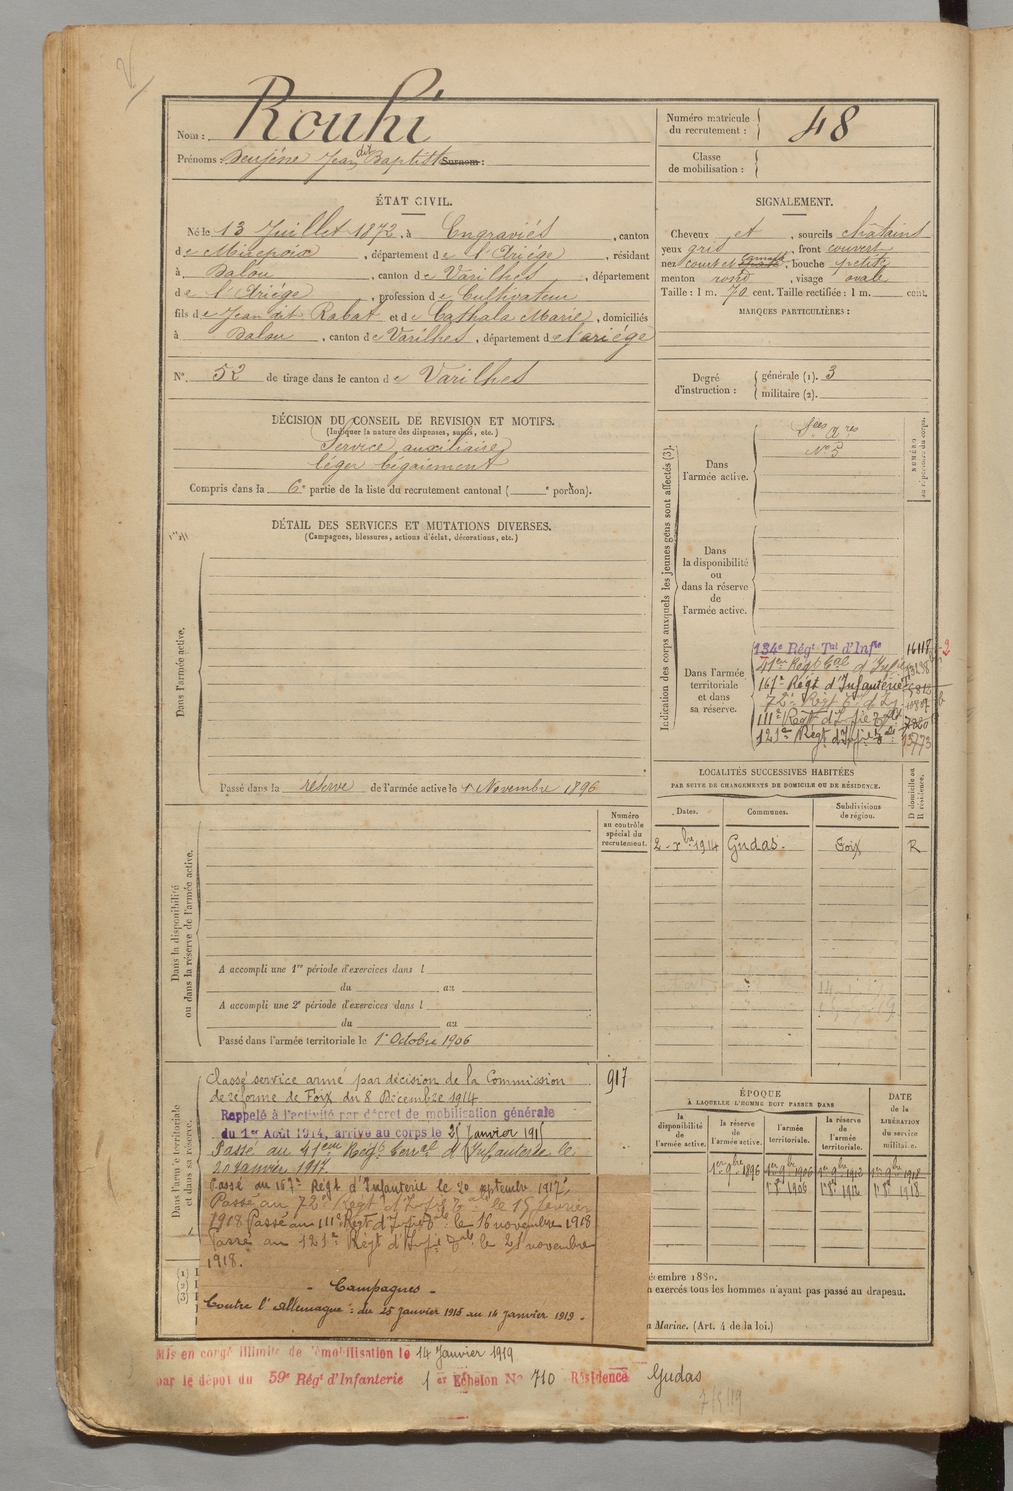 Nom : Rouhi
Prénoms : Jean dit Baptiste Surnom :
Numéro matricule du recrutement : 48
Classe de mobilisation :
ÉTAT CIVIL.
Né le 13 Juillet 1872, à Engraviès, canton
de Mirepoix, département de l'Ariège, résidant
à Dalou, canton de Varilhes, département
de l'Ariège, profession de Cultivateur
fils de Jean dit Rabat et de Cathala Marie, domiciliés
à Dalou, canton de Varilhes, département de l'ariège
N° 52 de tirage dans le canton de Varilhes
SIGNALEMENT.
Cheveux et, sourcils châtains
yeux gris, front couvert
nez court et, bouche petite
menton rond, visage ovale
Taille : 1 m. 70 cent. Taille rectifiée : 1 m. cent.
MARQUES PARTICULIÈRES :
Degré d'instruction : générale (1). 3
militaire (2).
DÉCISION DU CONSEIL DE REVISION ET MOTIFS.
(Indiquer la nature des dispenses, sursis, etc.)
Service auxiliaire
léger bégaiement
Compris dans la 6e partie de la liste du recrutement cantonal ( e portion).
DÉTAIL DES SERVICES ET MUTATIONS DIVERSES.
(Campagnes, blessures, actions d'éclat, décorations, etc.)
Dans l'armée active.
Passé dans la réserve de l'armée active le 1 Novembre 1896
Indication des corps auxquels les jeunes gens sont affectés (3).
NUMÉRO au répertoire du corps.
Dans l'armée active.
N° 5
Dans la disponibilité ou dans la réserve de l'armée active.
Dans l'armée territoriale et dans sa réserve.
134e Régt Tal d'Infie 16118
167e Régt d'Infanterie
111e Régt d'Infie
121e Régt d'Infie
LOCALITÉS SUCCESSIVES HABITÉES
PAR SUITE DE CHANGEMENTS DE DOMICILE OU DE RÉSIDENCE.
D domicile ou R résidence.
Dates. Communes. Subdivisions de région.
2 - Xbre 1914 Gudas. Foix R
Numéro au contrôle spécial du recrutement.
Dans la disponibilité ou dans la réserve de l'armée active.
A accompli une 1re période d'exercices dans l
du au
A accompli une 2e période d'exercices dans l
du au
Passé dans l'armée territoriale le 1er Octobre 1906
Dans l'armée territoriale et dans sa réserve.
Classé service armé par décision de la Commission 917
de réforme de Foix du 8 Décembre 1914
Rappelé à l'activité par décret de mobilisation générale
du 1er Août 1914, arrivé au corps le 25 Janvier 1915
Passé au 41em Régt Terral d'Infanterie le
20 Janvier 1917
Passé au 167e Régt d'Infanterie le 20 septembre 1917
Passé au 72e Régt d'Infie le 15 février
1918 Passé au 111e Régt d'Infie le 16 novembre 1918
Passé au 121e Régt d'Infie le 21 novembre
1918.
- Campagnes -
Contre l'allemagne : du 25 Janvier 1915 au 14 Janvier 1919 -
ÉPOQUE
A LAQUELLE L'HOMME DOIT PASSER DANS
DATE de la LIBÉRATION du service militaire.
la disponibilité de l'armée active. la réserve de l'armée active. l'armée territoriale. la réserve de l'armée territoriale.
1er 9bre 1896 1er 9bre 1906 1er 9bre 1912 1er 9bre 1918
1er 8bre 1906 1er 8bre 1912 1er 8bre 1918
(1)
(2)
(3)
écembre 1889.
n exercés tous les hommes n'ayant pas passé au drapeau.
a Marine. (Art. 4 de la loi.)
Mis en congé illimité de démobilisation le 14 Janvier 1919
par le dépôt du 59e Régt d'Infanterie 1er Echelon N° 710 Résidence Gudas